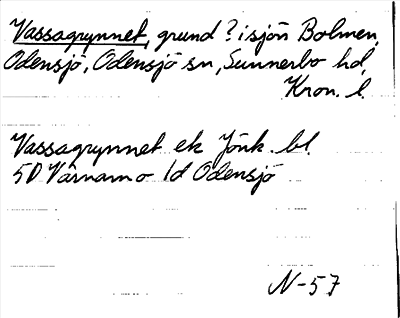 Vassagrynnet, grund? i sjön Bolmen,
Odensjö, Odensjö sn, Sunnerbo hd,
Kron. l.
Vassagrynnet ek Jönk. bl.
5D Värnamo 1d Odensjö
N-57